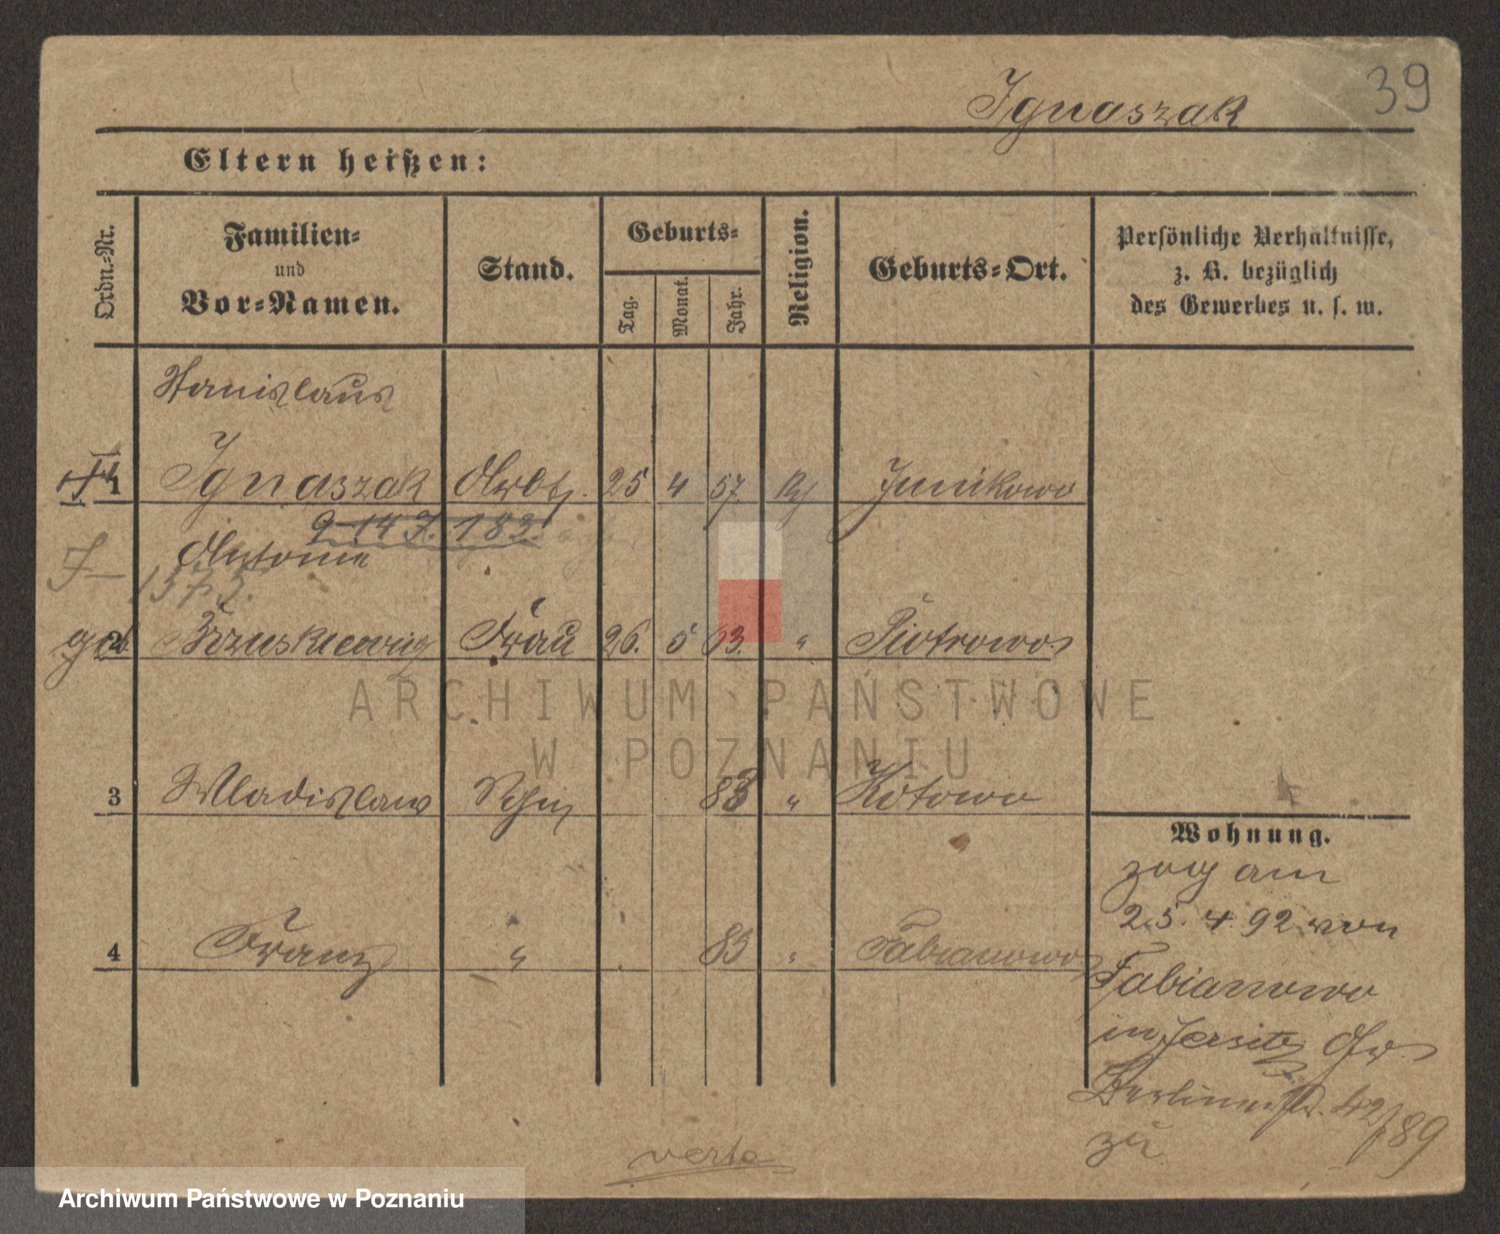 39
Ignaszak
Eltern heißen:
Ordn.-Nr.
Familien-
und
Vor-Namen.
Stand.
Geburts-
Tag.
Monat.
Jahr.
Religion.
Geburts-Ort.
Persönliche Verhältnisse,
z. B. bezüglich
des Gewerbes u. s. w.
Stanislaus
1 Ignaszak Arbtr. 25 4 57 Junikowo
Antonie
geb. 2 Frau 26. 5 63. " Piotrowo
3 Wladislaw Sohn 83 " Kotowo
4 Franz " 83 " Fabianowo
Wohnung.
zog am
25. 4. 92 von
Fabianowo
in Jersitz
Berliner 42/89
zu
verte
ARCHIWUM PAŃSTWOWE
W POZNANIU
Archiwum Państwowe w Poznaniu